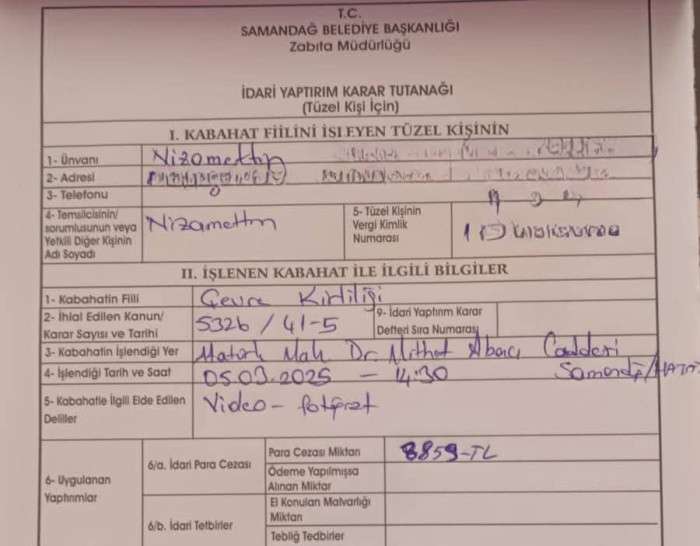 T.C.
SAMANDAĞ BELEDİYE BAŞKANLIĞI
Zabıta Müdürlüğü
İDARİ YAPTIRIM KARAR TUTANAĞI
(Tüzel Kişi İçin)
I. KABAHAT FİİLİNİ İŞLEYEN TÜZEL KİŞİNİN
1- Ünvanı Nizamettin
2- Adresi
3- Telefonu
4- Temsilcisinin/
sorumlusunun veya
Yetkili Diğer Kişinin
Adı Soyadı
Nizamettin
5- Tüzel Kişinin
Vergi Kimlik
Numarası
II. İŞLENEN KABAHAT İLE İLGİLİ BİLGİLER
1- Kabahatin Fiili Çevre Kirliliği
2- İhlal Edilen Kanun/
Karar Sayısı ve Tarihi
5326 / 41-5
9- İdari Yaptırım Karar
Defteri Sıra Numarası
3- Kabahatin İşlendiği Yer Mah Dr. Mithat Caddesi
4- İşlendiği Tarih ve Saat 05.03.2025 - 14:30 Samandağ/HATAY
5- Kabahatle İlgili Elde Edilen
Deliller
Video - fotoğraf
6- Uygulanan
Yaptırımlar
6/a. İdari Para Cezası
Para Cezası Miktarı 8859-TL
Ödeme Yapılmışsa
Alınan Miktar
6/b. İdari Tetbirler
El Konulan Malvarlığı
Miktarı
Tebliğ Tedbirler